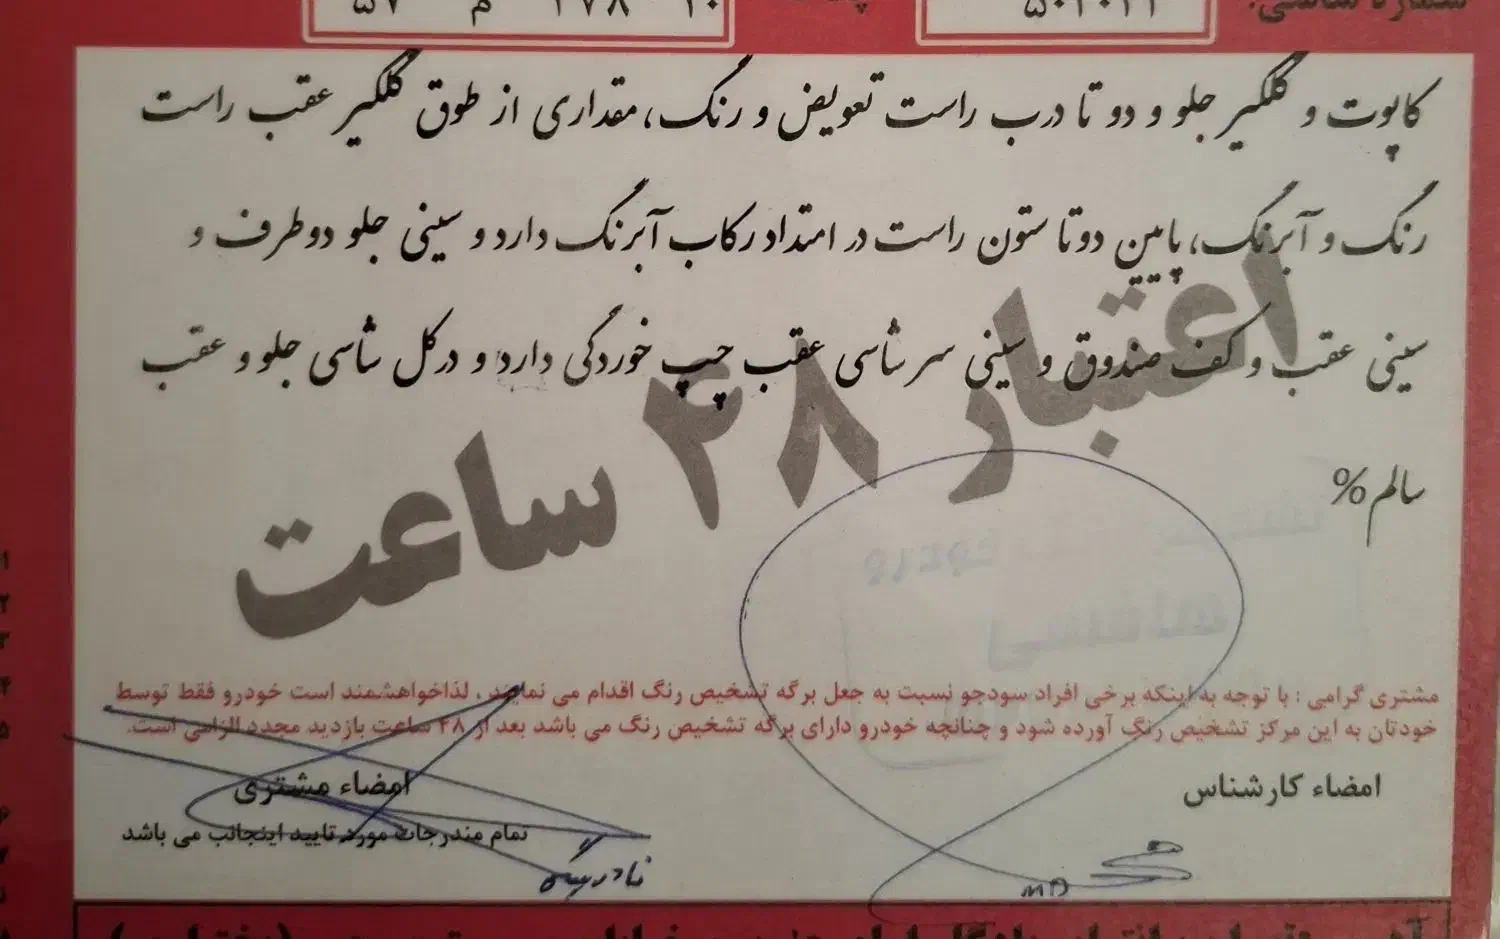 شماره شاسی:
کاپوت و گلگیر جلو و دو تا درب راست تعویض و رنگ، مقداری از طوق گلگیر عقب راست
رنگ و آبرنگ، پایین دوتا ستون راست در امتداد رکاب آبرنگ دارد و سینی جلو دوطرف و
سینی عقب و کف صندوق و سینی سر شاسی عقب چپ خوردگی دارد و درکل شاسی جلو و عقب
سالم%
اعتبار ۴۸ ساعت
مشتری گرامی : با توجه به اینکه برخی افراد سودجو نسبت به جعل برگه تشخیص رنگ اقدام می نمایند ، لذاخواهشمند است خودرو فقط توسط
خودتان به این مرکز تشخیص رنگ آورده شود و چنانچه خودرو دارای برگه تشخیص رنگ می باشد بعد از ۴۸ ساعت بازدید مجدد الزامی است.
امضاء کارشناس
امضاء مشتری
تمام مندرجات مورد تایید اینجانب می باشد